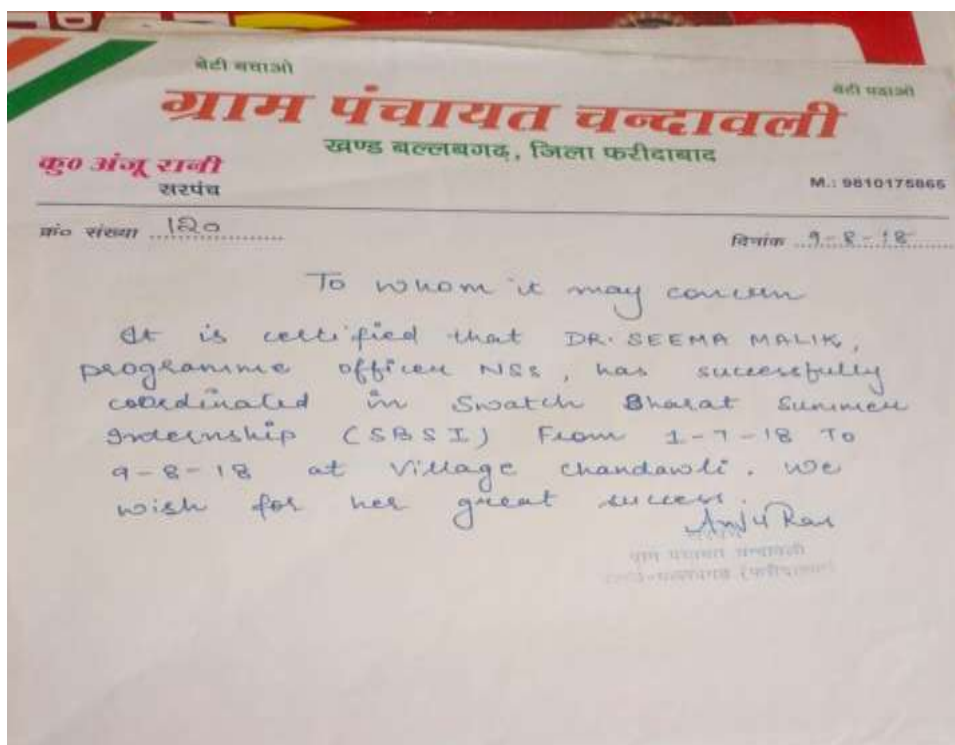 बेटी बचाओ
बेटी पढ़ाओ
ग्राम पंचायत चन्दावली
खण्ड बल्लबगढ़, जिला फरीदाबाद
कु० अंजू रानी
सरपंच
M.: 9810175865
क्रं० संख्या 120
दिनांक 9-8-18
To whom it may concern
It is certified that DR. SEEMA MALIK,
programme officer NSS, has successfully
coordinated in Swatch Bharat Summer
Internship (SBSI) From 1-7-18 To
9-8-18 at Village Chandawli. We
wish for her great success.
Anju Rani
ग्राम पंचायत चन्दावली